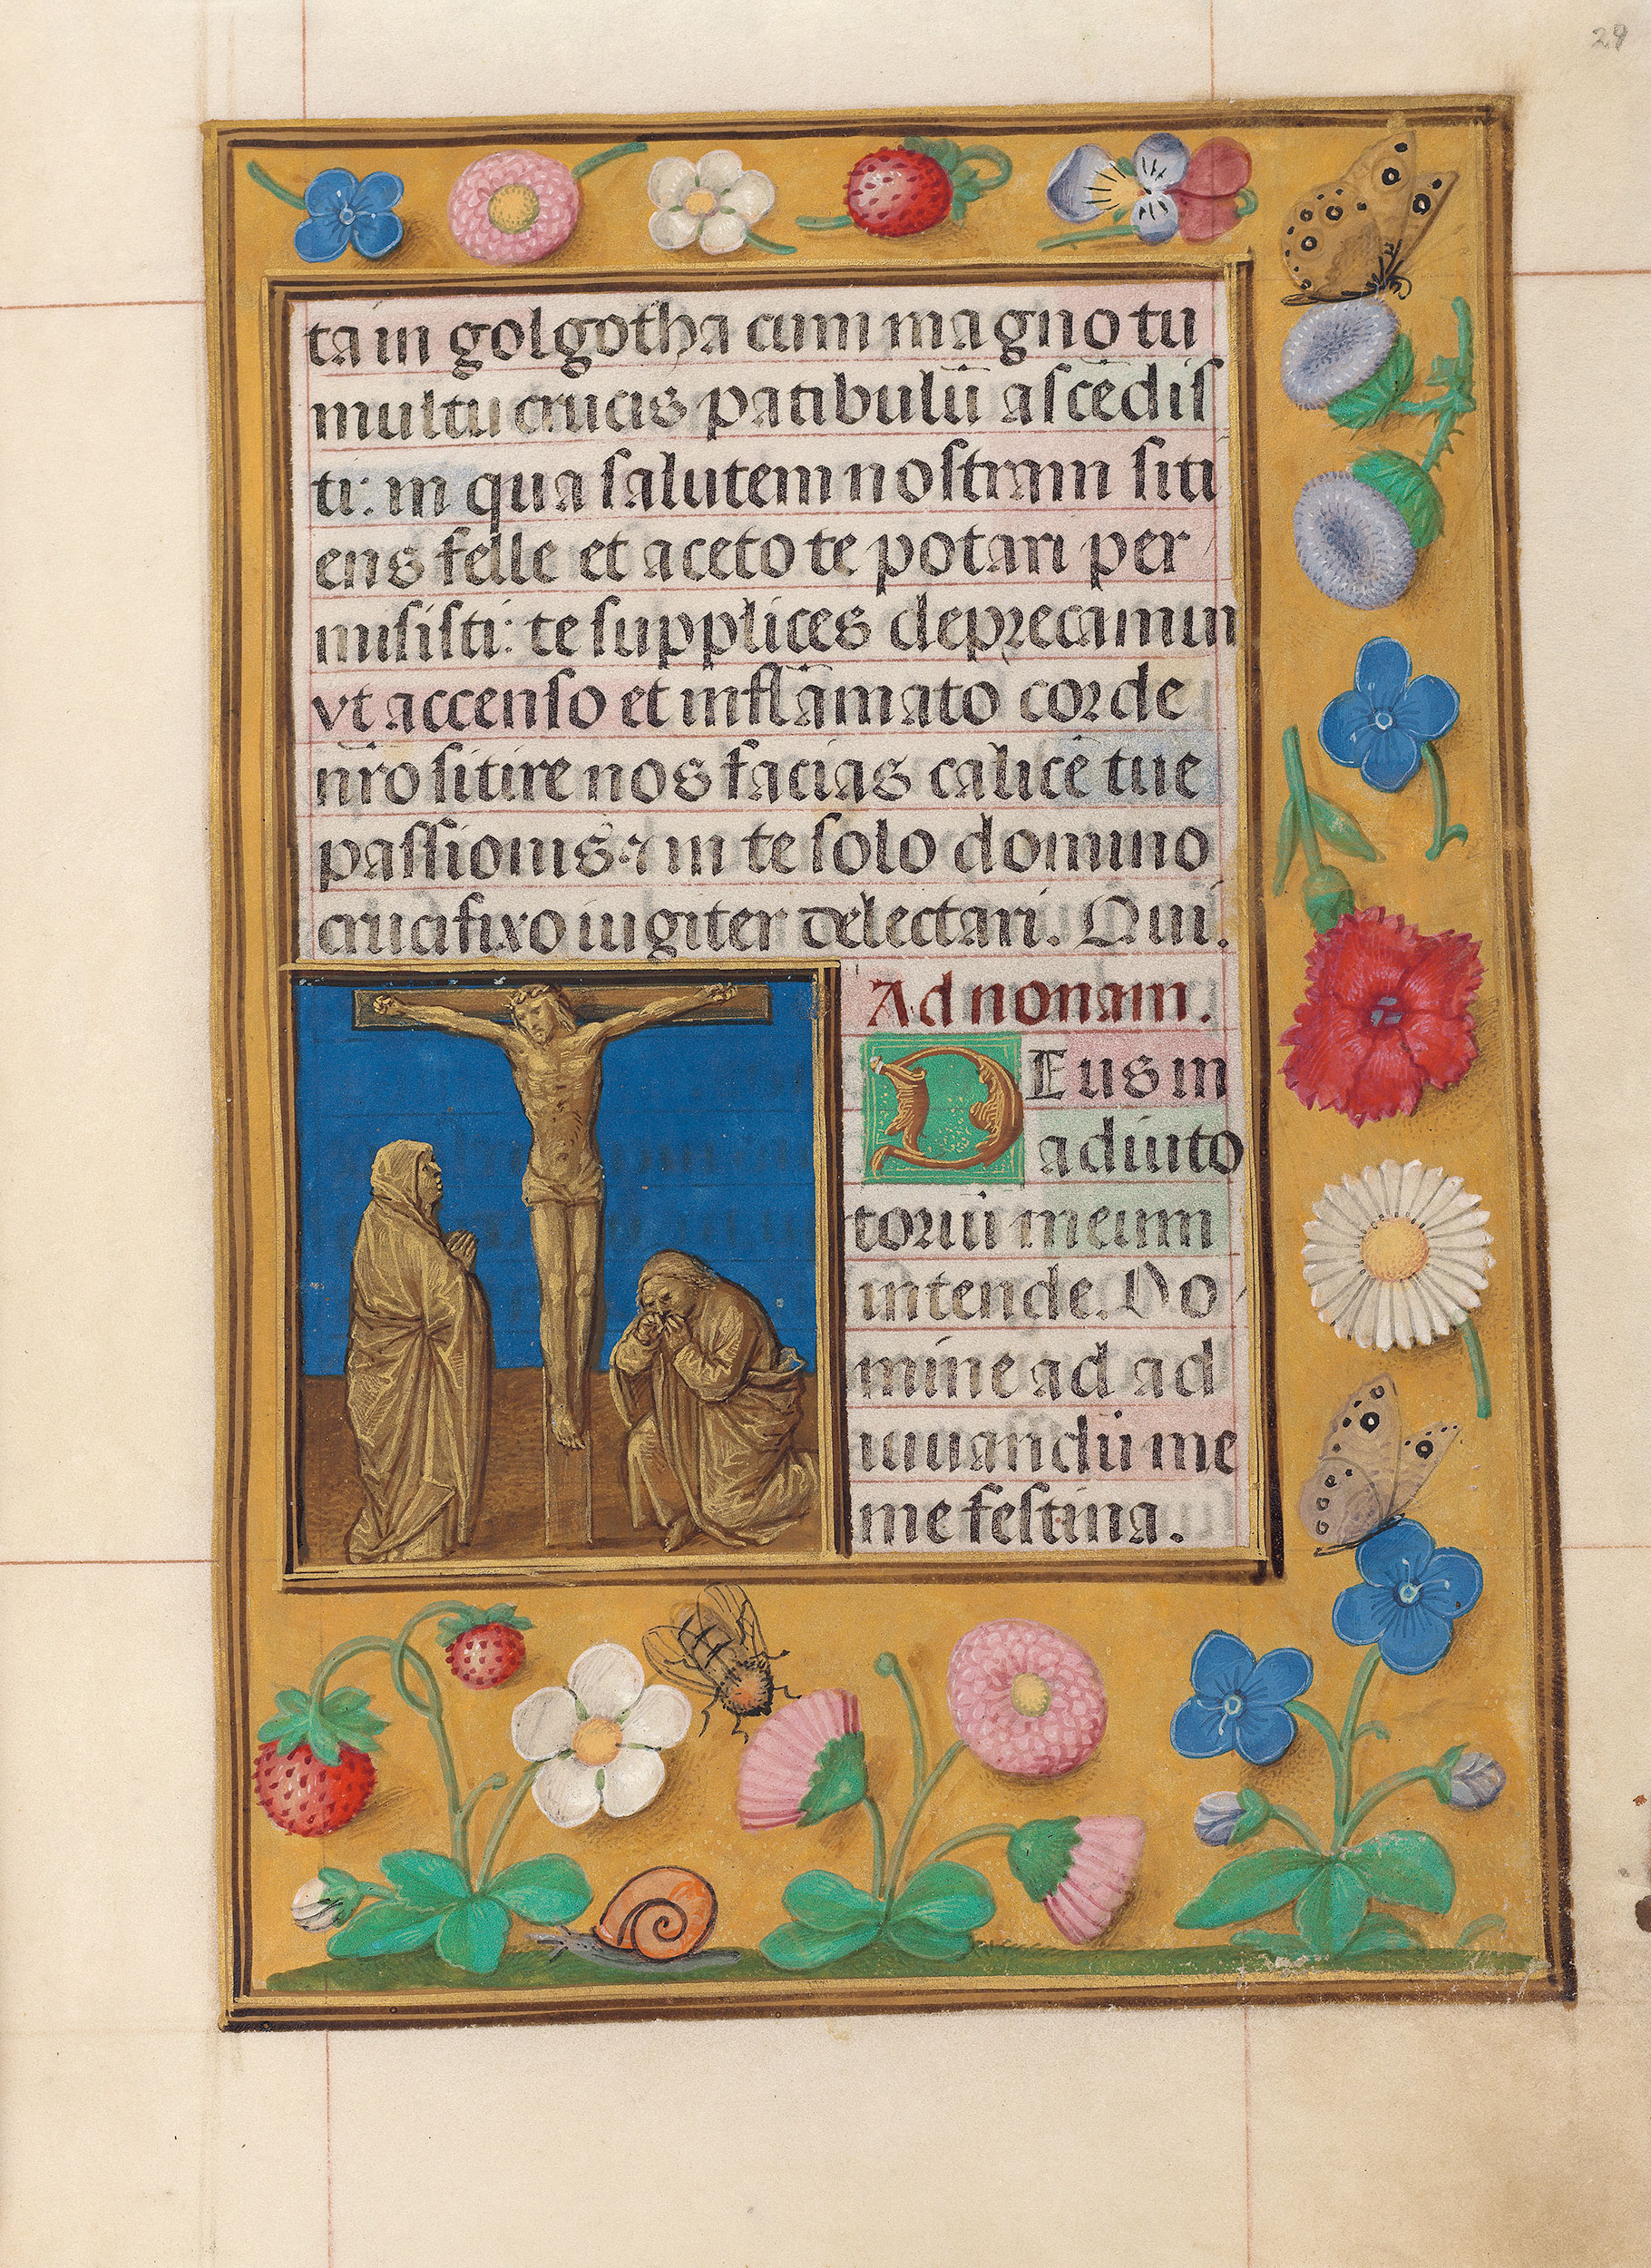 29
ta in golgotha cum magno tu
multu crucis patibulū ascēdis
ti: in qua salutem nostram siti
ens felle et aceto te potari per
misisti: te supplices deprecamur
vt accenso et inflāmato corde
nr̄o sitire nos facias calicē tue
passionis: ⁊ in te solo domino
crucifixo iugiter delectari. Qui.
Ad nonam.
DEus in
adiuto
toriū meum
intende. Do
mine ad ad
iuuandū me
me festina.